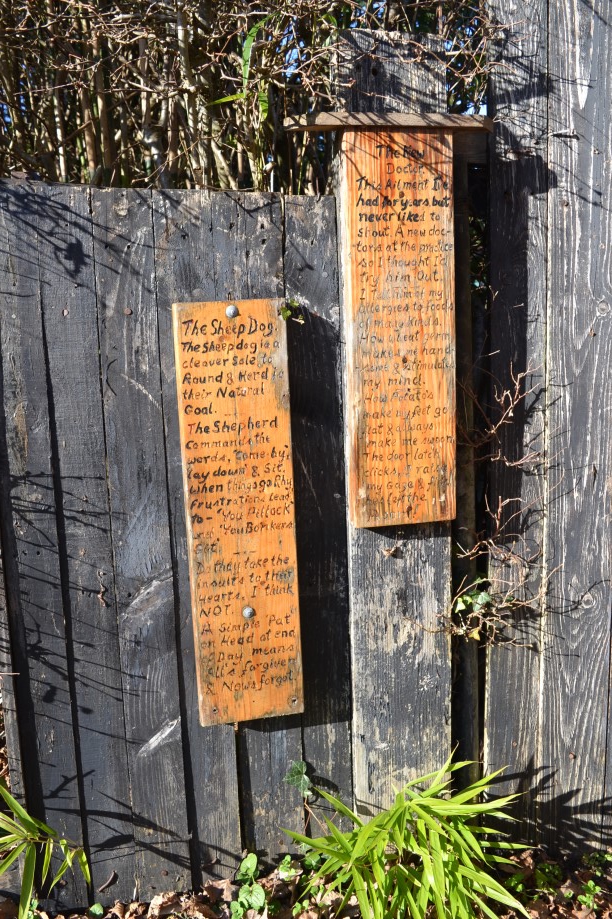 The Sheep Dog.
The Sheepdog is a
cleaver Sole, to
Round & Herd to
their Natural
Goal.
The Shepherd
Commands the
words, "Come-by,
lay down" & Sit.
When things go Rhy
frustrations Lead
to- "You Pillock"
"You Bonkers
Git".
Do they take the
insults to their
Hearts, I think
NOT.
A Simple 'Pat'
on Head at end
Day, means
All's forgiven
& Nows forgot.
The New
Doctor.
This Ailment I've
had for years but
never liked to
shout. A new doc-
tors at the practice
so I thought I'd
try him Out.
I tell him of my
Allergies to foods
of many kinds.
How wheat germ
makes me hand-
some & stimulates
my mind.
How Potatos
make my feet go
flat & always
make me swoon.
The door latch
clicks, I raise
my Gaze &
the